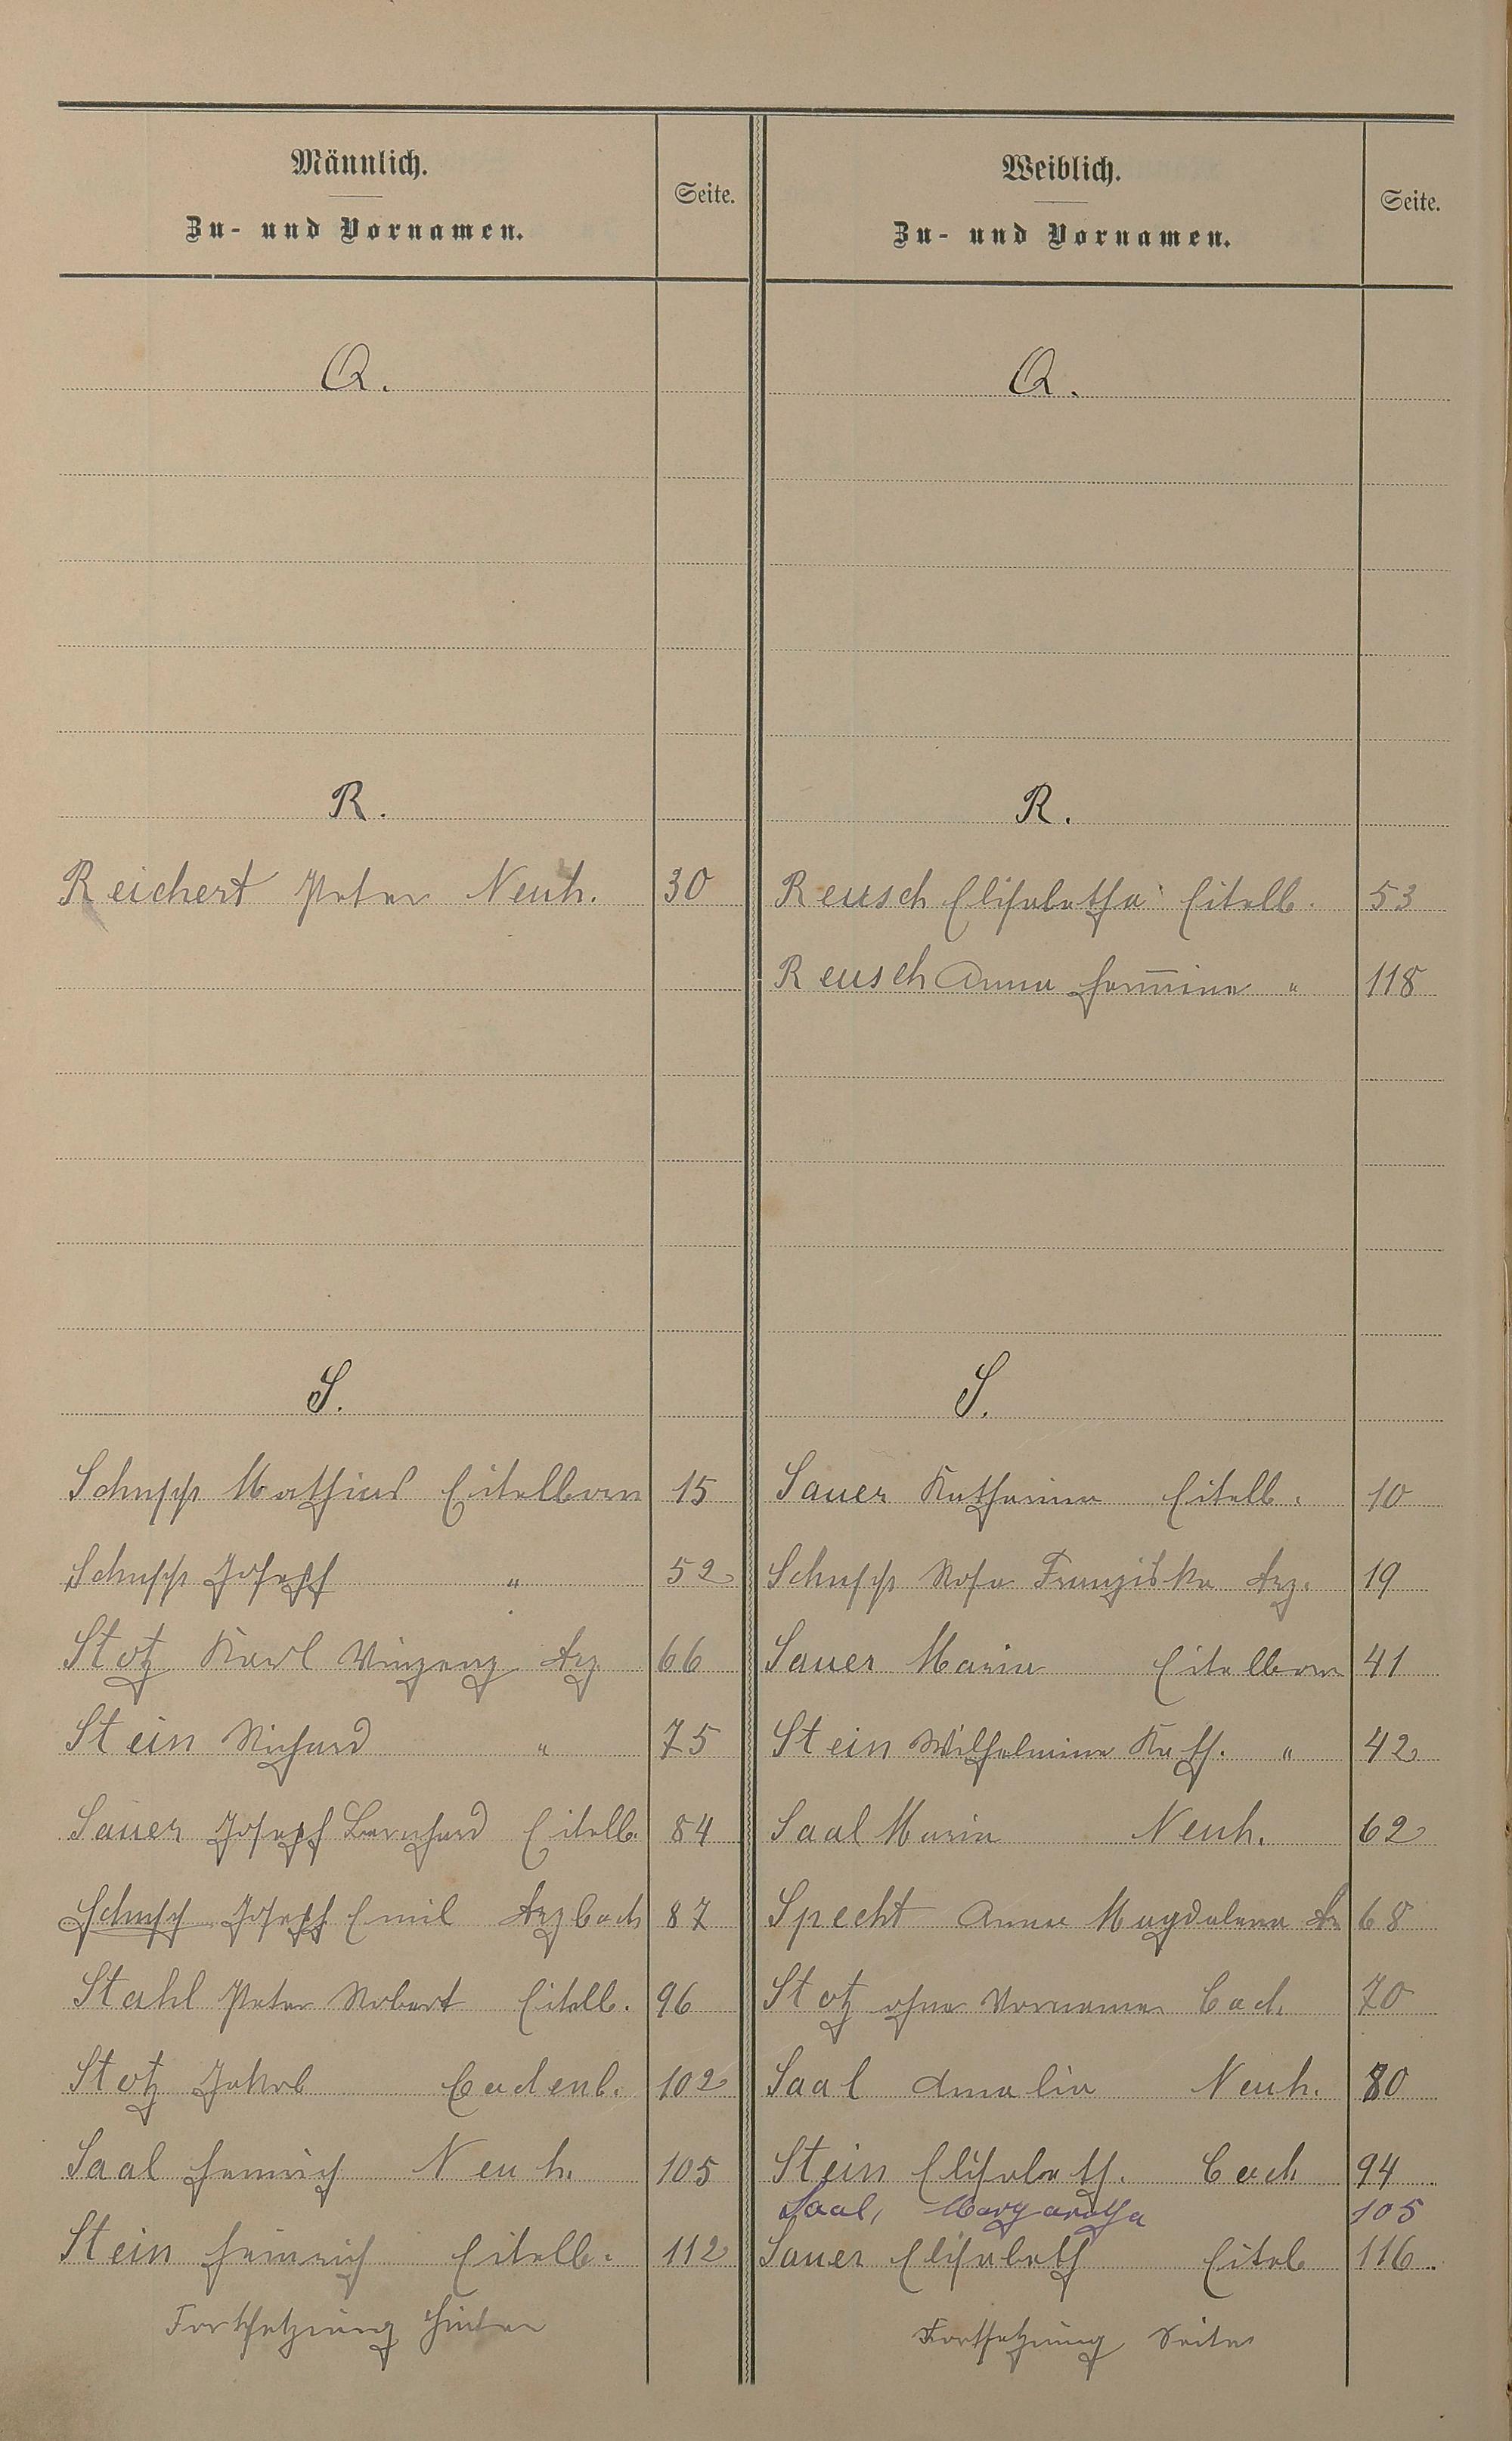 Männlich.
Zu- und Vornamen.
Seite.
Q.
R.
Reichert Peter Neuh. 30
S.
Schupp Mathias Eitelborn 15
Schupp Joseph " 52
Stotz Karl Vinzenz Arz 66
Stein Richard " 75
Sauer Joseph Bernhard Eitelb. 84
Schupp Joseph Emil Arzbach 87
Stahl Peter Robert Eitelb. 96
Stotz Jakob Cadenb. 102
Saal Heinrich Neuh. 105
Stein Heinrich Eitelb. 112
Fortsetzung hinten
Weiblich.
Zu- und Vornamen.
Seite.
Q.
R.
Reusch Elisabetha Eitelb. 53
Reusch Anna Hermine " 118
S.
Sauer Katharina Eitelb. 10
Schupp Rosa Franziska Arz. 19
Sauer Maria Eitelborn 41
Stein Wilhelmine Kath. " 42
Saal Maria Neuh. 62
Specht Anna Magdalena Ar 68
Stotz ohne Vornamen Cad. 70
Saal Amalia Neuh. 80
Stein Elisabeth. Cad 94
Saal, Margaretha 105
Sauer Elisabeth Eitelb 116.
Fortsetzung Seite